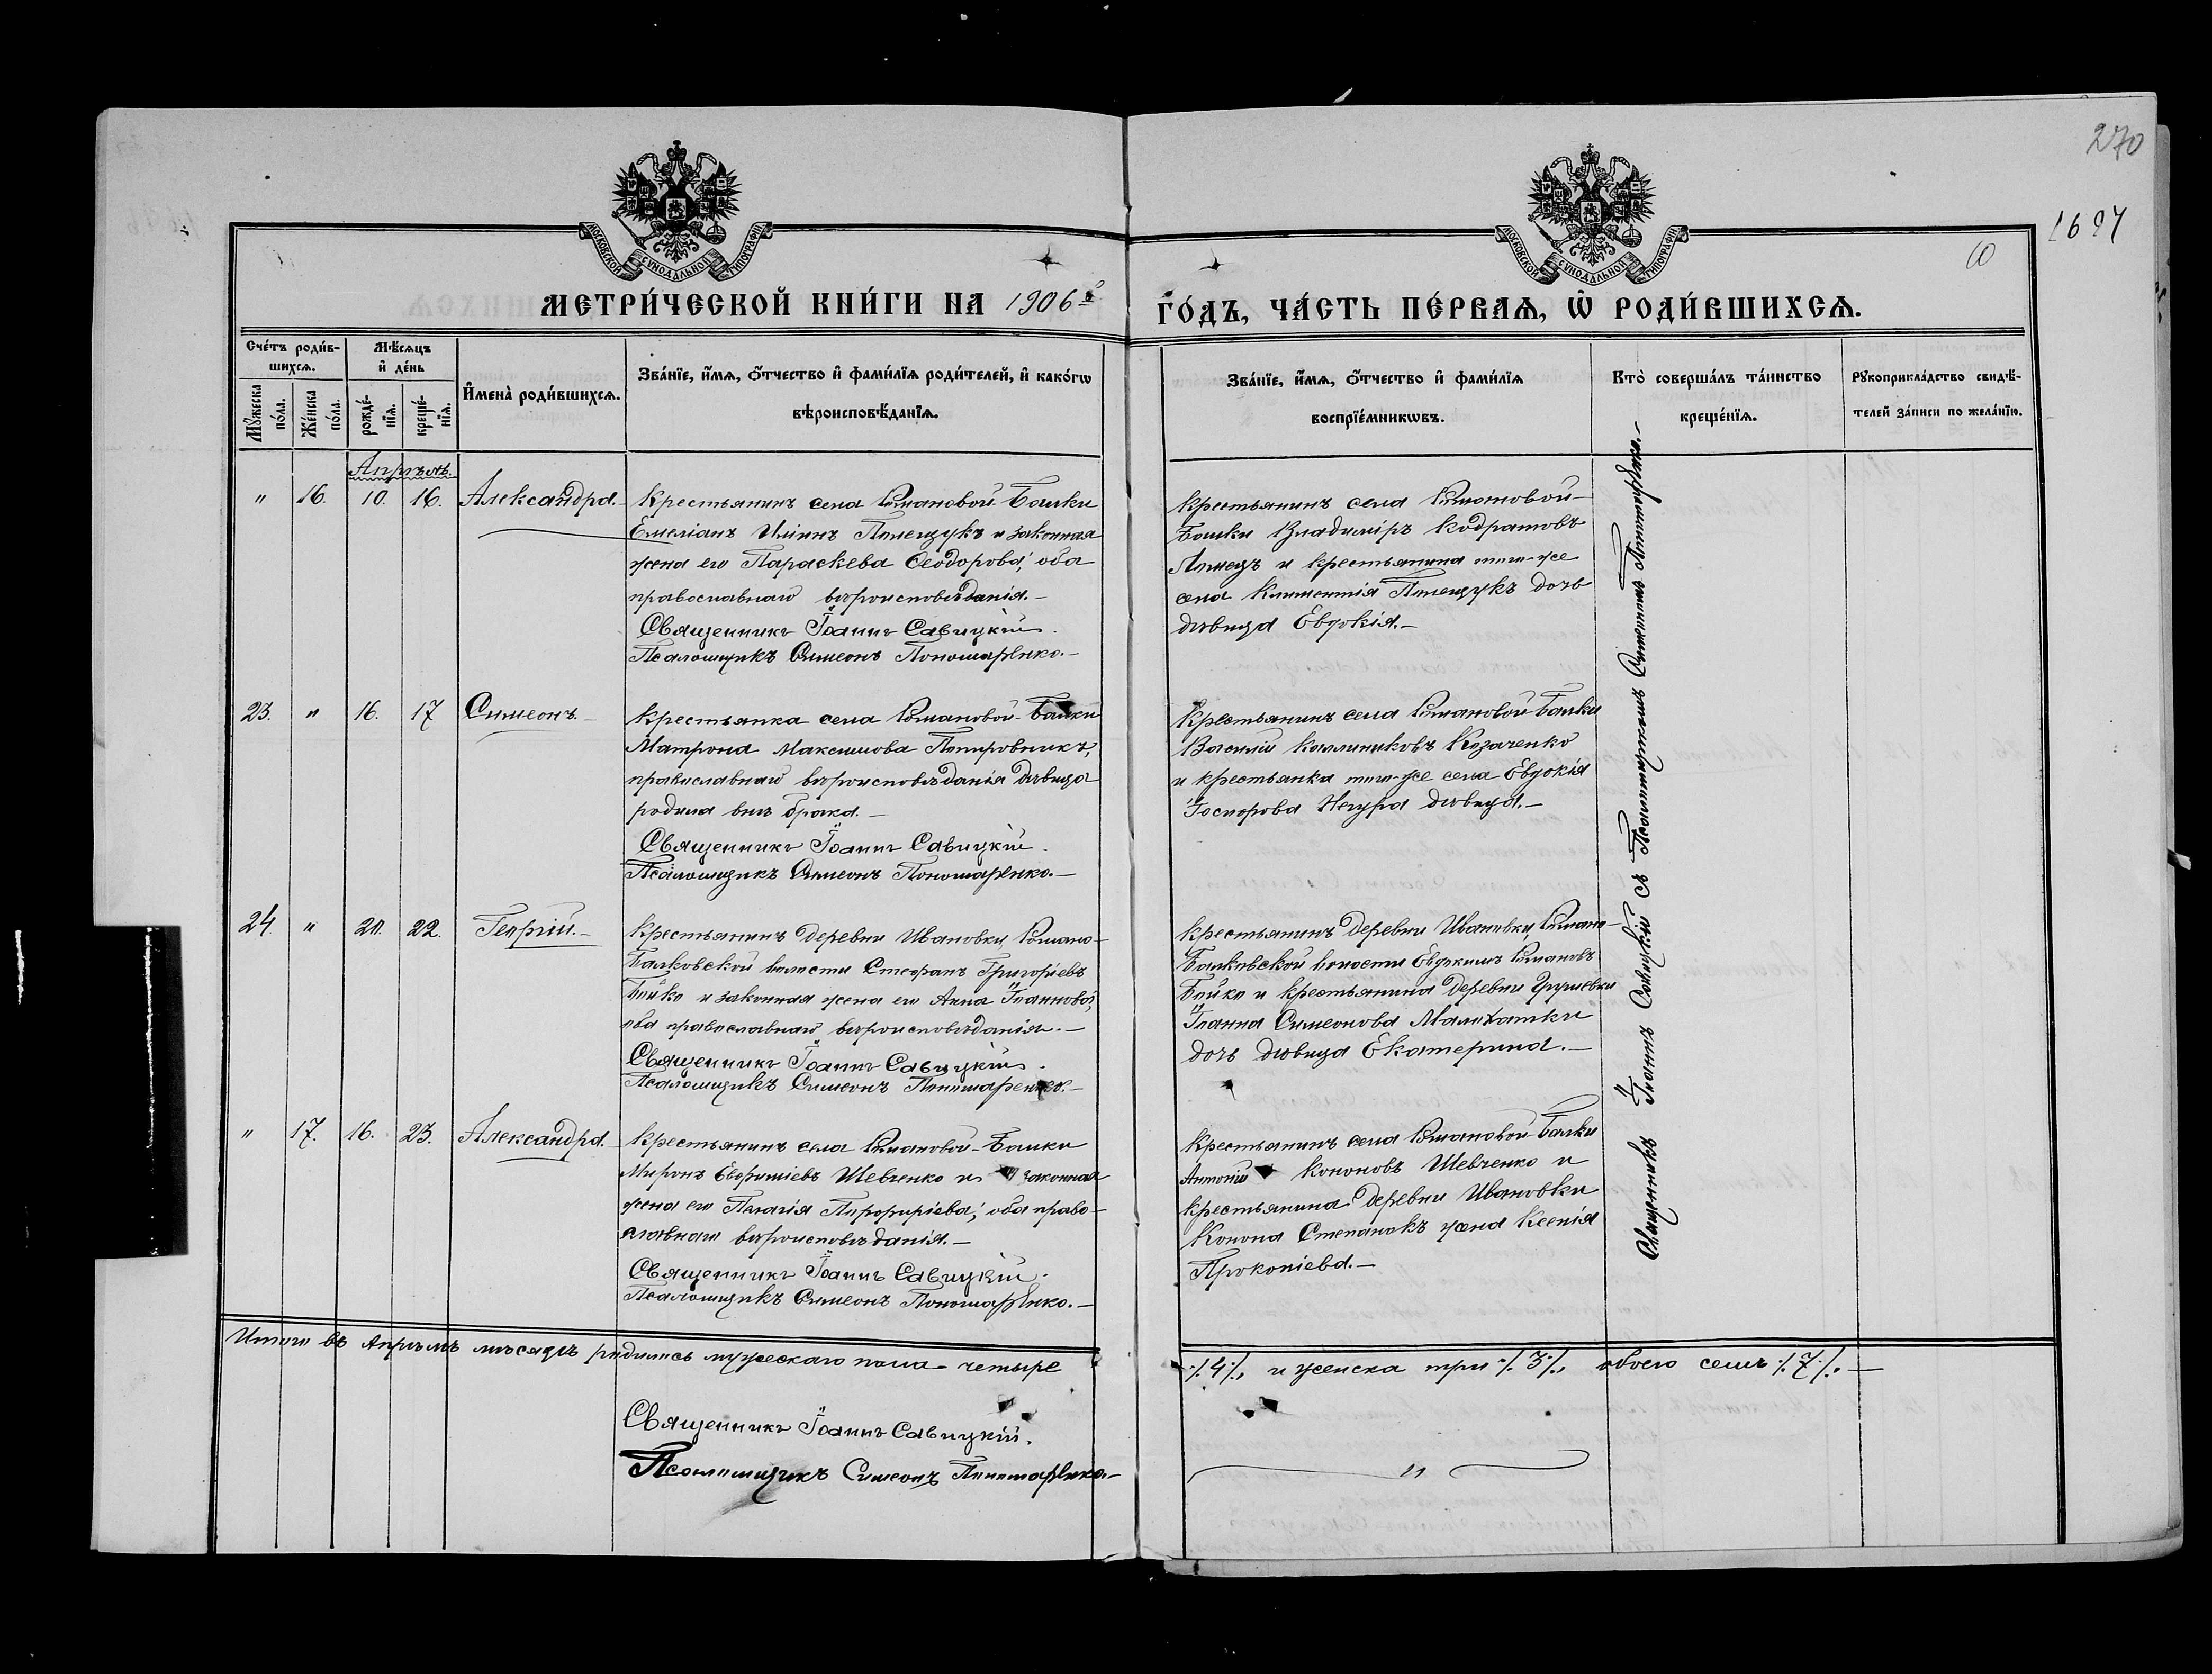 270
1697
МОСКОВСКОЙ СѴНОДАЛЬНОЙ ТИПОГРАФІИ
МОСКОВСКОЙ СѴНОДАЛЬНОЙ ТИПОГРАФІИ
МЕТРИ́ЧЕСКОЙ КНИ́ГИ НА 1906й
ГО́ДЪ, ЧА́СТЬ ПЕ́РВАѦ, Ѡ҆ РОДИ́ВШИХСѦ.
Сче́тъ роди́в-
шихсѧ.
Мѣ́сѧцъ
и҆ де́нь
Мꙋ́жеска
по́ла.
Же́нска
по́ла.
рожде́-
нїѧ.
креще́-
нїѧ.
И҆мена̀ роди́вшихсѧ.
Зва́нїе, и҆́мѧ, ѻ҆́тчество и҆ фами́лїѧ роди́телей, и҆ како́гѡ
вѣроисповѣ́данїѧ.
Зва́нїе, и҆́мѧ, ѻ҆́тчество и҆ фами́лїѧ
воспрїе́мникѡвъ.
Кто̀ соверша́лъ та́инство
креще́нїѧ.
Рꙋкоприкла́дство свидѣ́-
телей за́писи по жела́нїю.
Апрѣль.
" 16. 10. 16. Александра.
Крестьянинъ села Романовой-Балки
Емеліанъ Иліинъ Плещукъ и законная
жена его Параскева Ѳеодорова; оба
православнаго вѣроисповѣданія.
Священникъ Іоаннъ Савицкій.
Псаломщикъ Симеонъ Пономаренко.
Крестьянинъ села Романовой-
Балки Владиміръ Кодратовъ
и крестьянина того-же
села Климентія Плещукъ дочь
дѣвица Евдокія.
23. " 16. 17 Симеонъ.
Крестьянка села Романовой-Балки
Матрона Максимова
православнаго вѣроисповѣданія дѣвица
родила внѣ брака.
Священникъ Іоаннъ Савицкій.
Псаломщикъ Симеонъ Пономаренко.
Крестьянинъ села Романовой-Балки
Василій Каллиниковъ Козаченко
и крестьянка того-же села Евдокія
Негура дѣвица.
24. " 20. 22. Георгій.
Крестьянинъ деревни Ивановки, Романо-
Балковской волости Стефанъ Григоріевъ
Бойко и законная жена его Анна Іоаннова;
оба православнаго вѣроисповѣданія.
Священникъ Іоаннъ Савицкій.
Псаломщикъ Симеонъ Пономаренко.
Крестьянинъ деревни Ивановки, Романо-
Балковской волости Евдокимъ Романовъ
Бойко и крестьянина деревни Грушевки
Іоанна Симеонова
дочь дѣвица Екатерина.
" 17. 16. 23. Александра.
Крестьянинъ села Романовой-Балки
Миронъ Евфиміевъ Шевченко и законная
жена его Пелагія Порфиріева; оба право-
славнаго вѣроисповѣданія.
Священникъ Іоаннъ Савицкій.
Псаломщикъ Симеонъ Пономаренко.
Крестьянинъ села Романовой-Балки
Антоній Кононовъ Шевченко и
крестьянина деревни Ивановки
Конона Степанокъ жена Ксенія
Прокопіева.
Священникъ Іоаннъ Савицкій съ Псаломщикомъ Симеономъ Пономаренко.
Итого въ Апрѣлѣ мѣсяцѣ родилось мужескаго пола четыре
·/.4·/., и женска три ·/.3·/., обоего семь ·/.7·/.
Священникъ Іоаннъ Савицкій.
Псаломщикъ Симеонъ Пономаренко
"